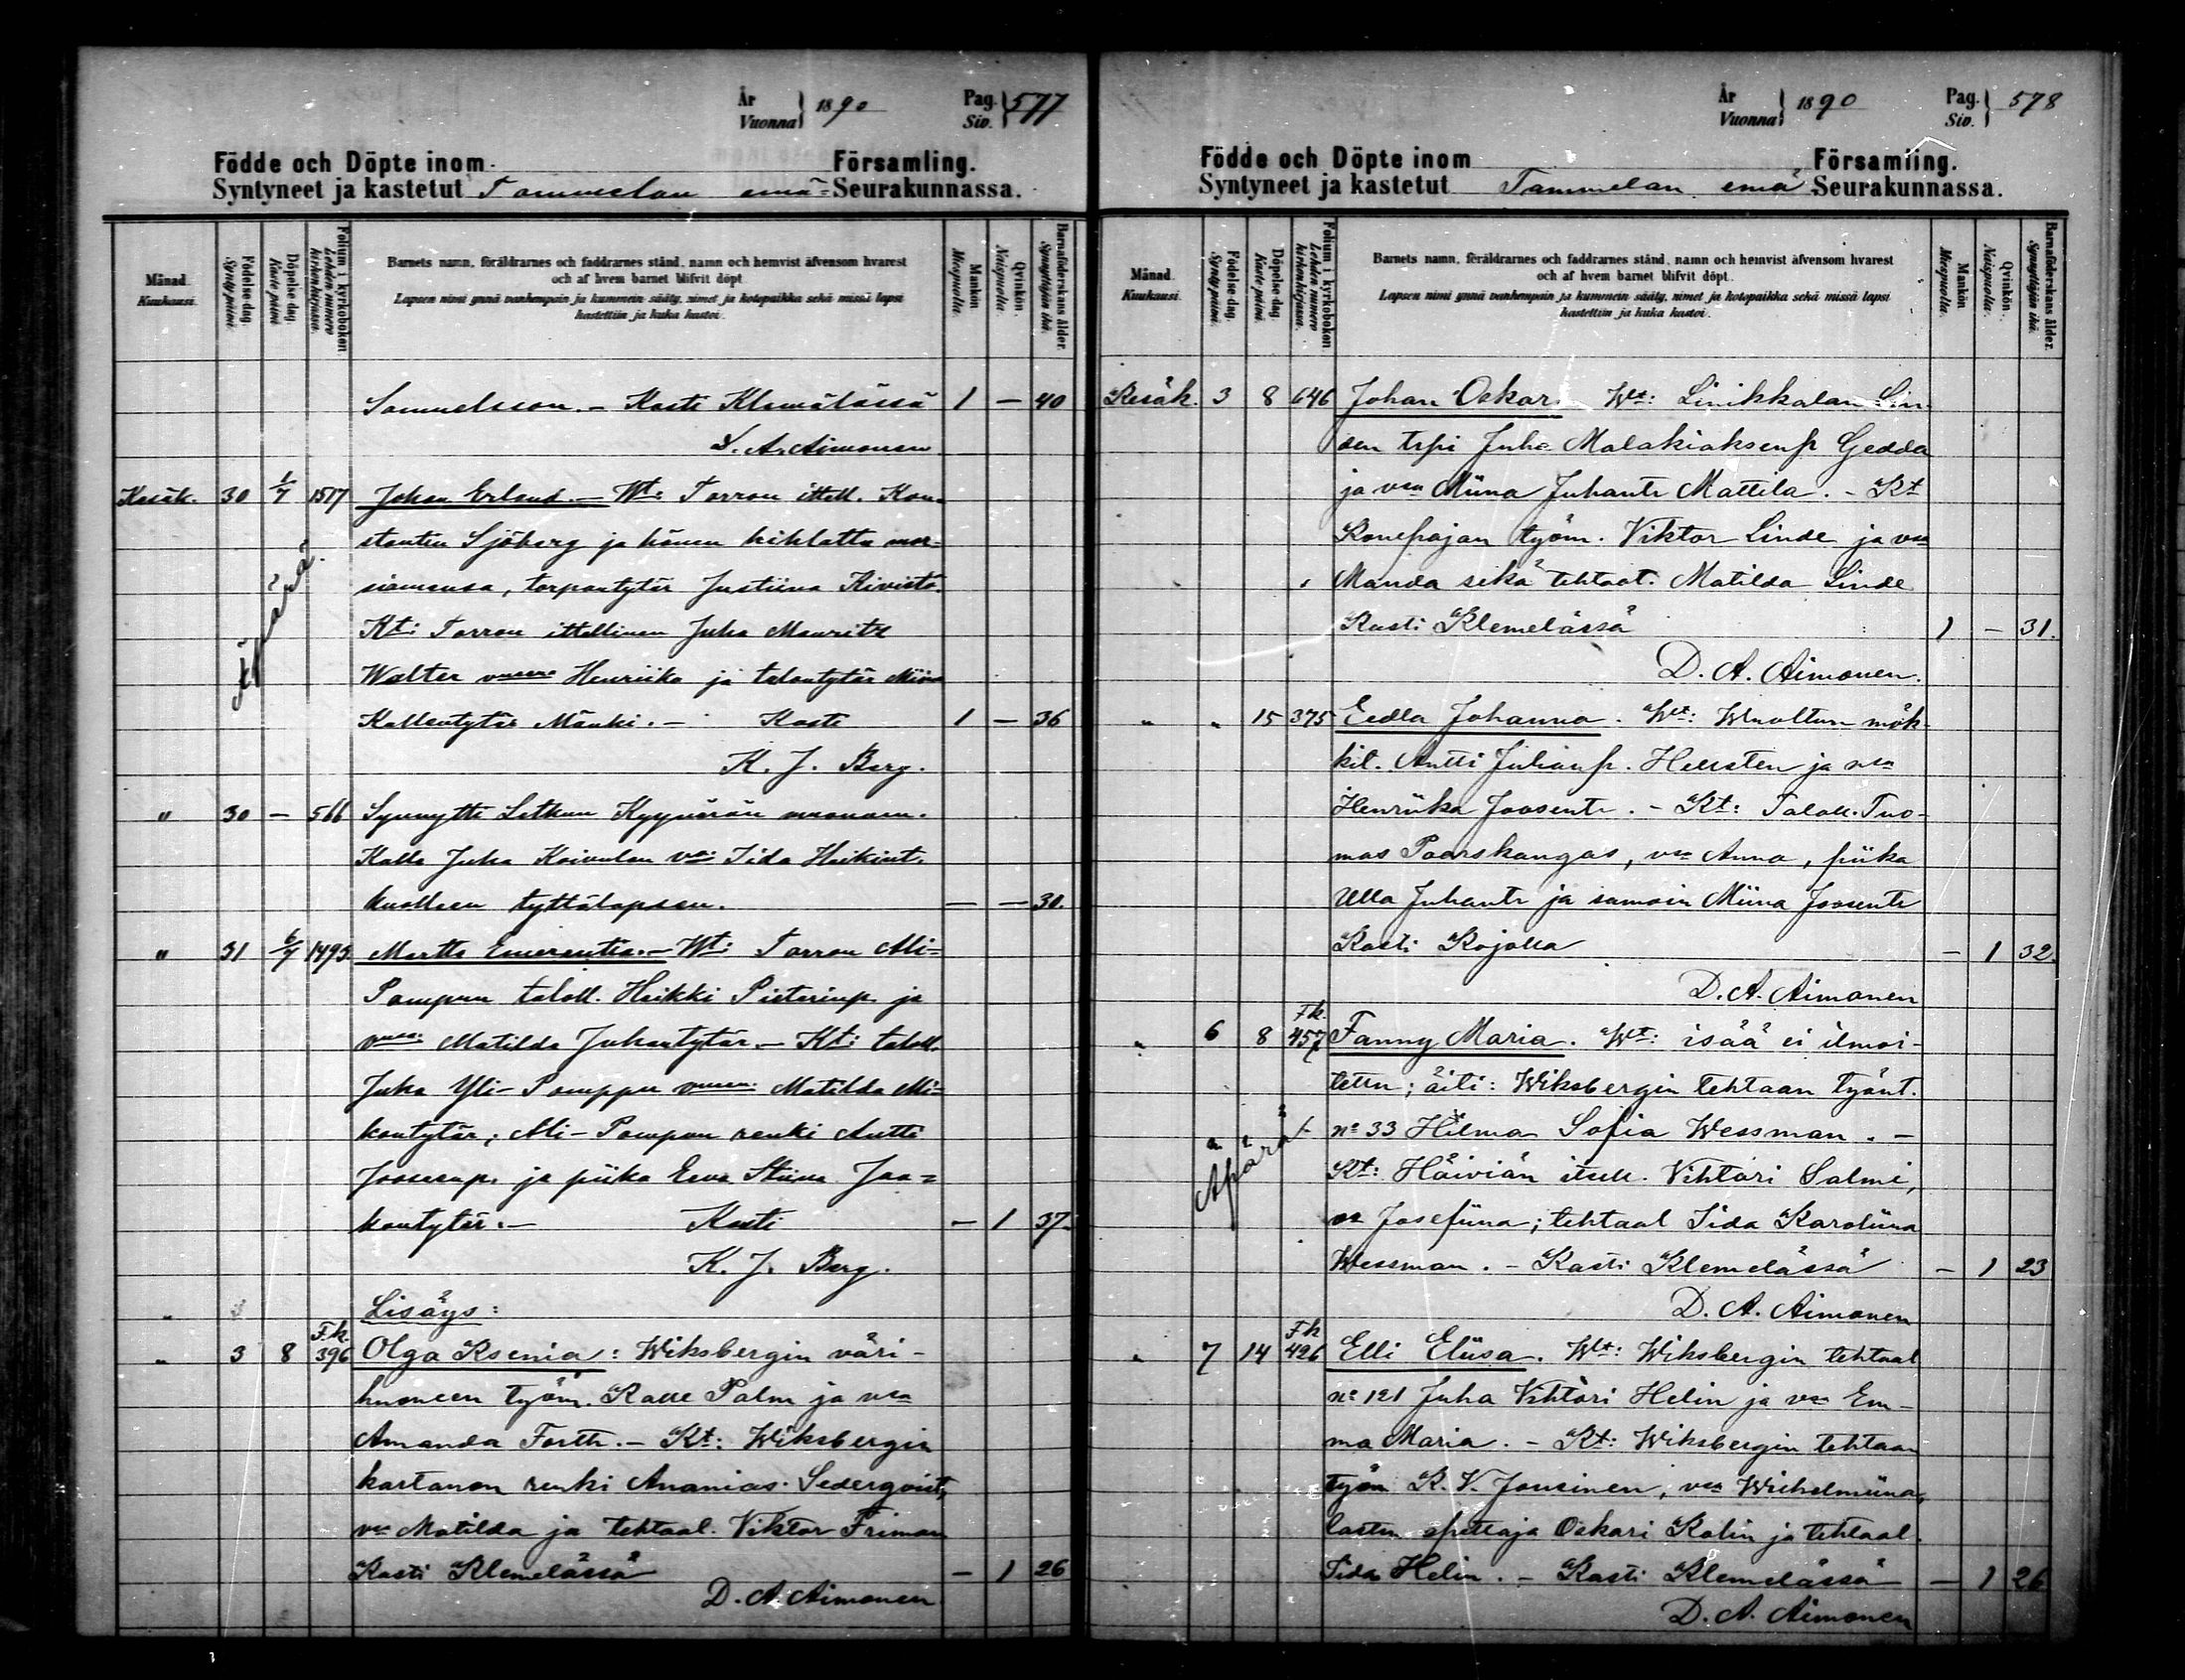 År
Vuonna } 1890 Pag.
Siv. } 577
Födde och Döpte inom Församling.
Syntyneet ja kastetut Tammelan emä- Seurakunnassa.
Månad. Kuukausi.
Födelse dag. Synty päivä.
Döpelse dag. Kaste päivä.
Folium i kyrkoboken. Lehden numero kirkonkirjassa.
Barnets namn, föräldrarnes och faddrarnes stånd, namn och hemvist äfvensom hvarest
och af hvem barnet blifvit döpt.
Lapsen nimi ynnä vanhempain ja kummein sääty, nimet ja kotopaikka sekä missä lapsi
kastettiin ja kuka kastoi.
Mankön. Miespuolta.
Qvinkön. Naispuolta.
Barnaföderskans ålder. Synnyttäjän ikä.
Samuelsson. - Kasti Klemelässä 1 - 40
D. A. Aimonen
Kesäk. 30 1/7 1517 Johan Erland. - Wt: Torron ittell. Kon-
stantin Sjöberg ja hänen kihlattu mor-
siamensa, torpantytär Justiina Kivistö.
Äpärä.
Kt: Torron ittellinen Juha Mauritz
Walter vmonsa Henriika ja talontytär Miina
Kallentytär Mänki. - Kasti 1 - 36
K. J. Berg.
" 30 - 566 Synnytti Letkun Kyynärän muonam.
Kalle Juha Koivulan va: Iida Heikint.
kuolleen tyttölapsen. - - 30.
" 31 6/7 1493 Martta Emerentia. - Wt: Torron Ali-
Pompun taloll. Heikki Pieterinp. ja
vmsa: Matilda Juhantytär. - Kt: taloll.
Juha Yli-Pomppu vmsa: Matilda Mi-
kontytär; Ali-Pompun renki Antti
Joosenp. ja piika Eeva Stiina Jaa-
kontytär. - Kasti - 1 37
K. J. Berg.
" 3 Lisäys:
" 3 8 F.k. 396 Olga Ksenia: Wiksbergin väri-
huoneen työm. Kalle Palm ja vsa
Amanda Forth. - Kt: Wiksbergin
kartanon renki Ananias Sederqvist,
va Matilda ja tehtaal. Viktor Friman
Kasti Klemelässä - 1 26
D. A. Aimonen
År
Vuonna } 1890 Pag.
Siv. } 578
Födde och Döpte inom Församling.
Syntyneet ja kastetut Tammelan emä Seurakunnassa.
Månad. Kuukausi.
Födelse dag. Synty päivä.
Döpelse dag. Kaste päivä.
Folium i kyrkoboken. Lehden numero kirkonkirjassa.
Barnets namn, föräldrarnes och faddrarnes stånd, namn och hemvist äfvensom hvarest
och af hvem barnet blifvit döpt.
Lapsen nimi ynnä vanhempain ja kummein sääty, nimet ja kotopaikka sekä missä lapsi
kastettiin ja kuka kastoi.
Mankön. Miespuolta.
Qvinkön. Naispuolta.
Barnaföderskans ålder. Synnyttäjän ikä.
Kesäk. 3 8 646 Johan Oskari Wt: Linikkalan Lin-
den trpi Juha Malakiaksenp Gedda
ja vsa Miina Juhantr Mattila. - Kt
Konepajan työm. Viktor Linde ja vsa
Manda sekä tehtaat. Matilda Linde
Kasti Klemelässä 1 - 31.
D. A. Aimonen.
" " 15 375 Eedla Johanna. Wt: Wuoltun mök-
kil. Antti Juhanp. Hellsten ja vsa
Henriika Joosentr. - Kt: Taloll. Tuo-
mas Paarskangas, vsa Anna, piika
Ulla Juhantr ja samoin Miina Joosentr
Kasti Kojolla - 1 32.
D. A. Aimonen
" 6 8 F.k. 457 Fanny Maria. Wt: isää ei ilmoi-
tettu; äiti: Wiksbergin tehtaan työnt.
no 33 Hilma Sofia Wessman. -
Äpärä
Kt: Häiviän itsell. Vihtori Salmi,
va Josefiina; tehtaal Iida Karoliina
Wessman. - Kasti Klemelässä - 1 23
D. A. Aimonen
" 7 14 F.k 426 Elli Eliisa. Wt: Wiksbergin tehtaal
no 121 Juha Vihtori Helin ja vsa Em-
ma Maria. - Kt: Wiksbergin tehtaan
työm K. V. Jousinen, vsa Wilhelmiina,
lasten opettaja Oskari Kolin ja tehtaal.
Iida Helin. - Kasti Klemelässä - 1 26
D. A. Aimonen